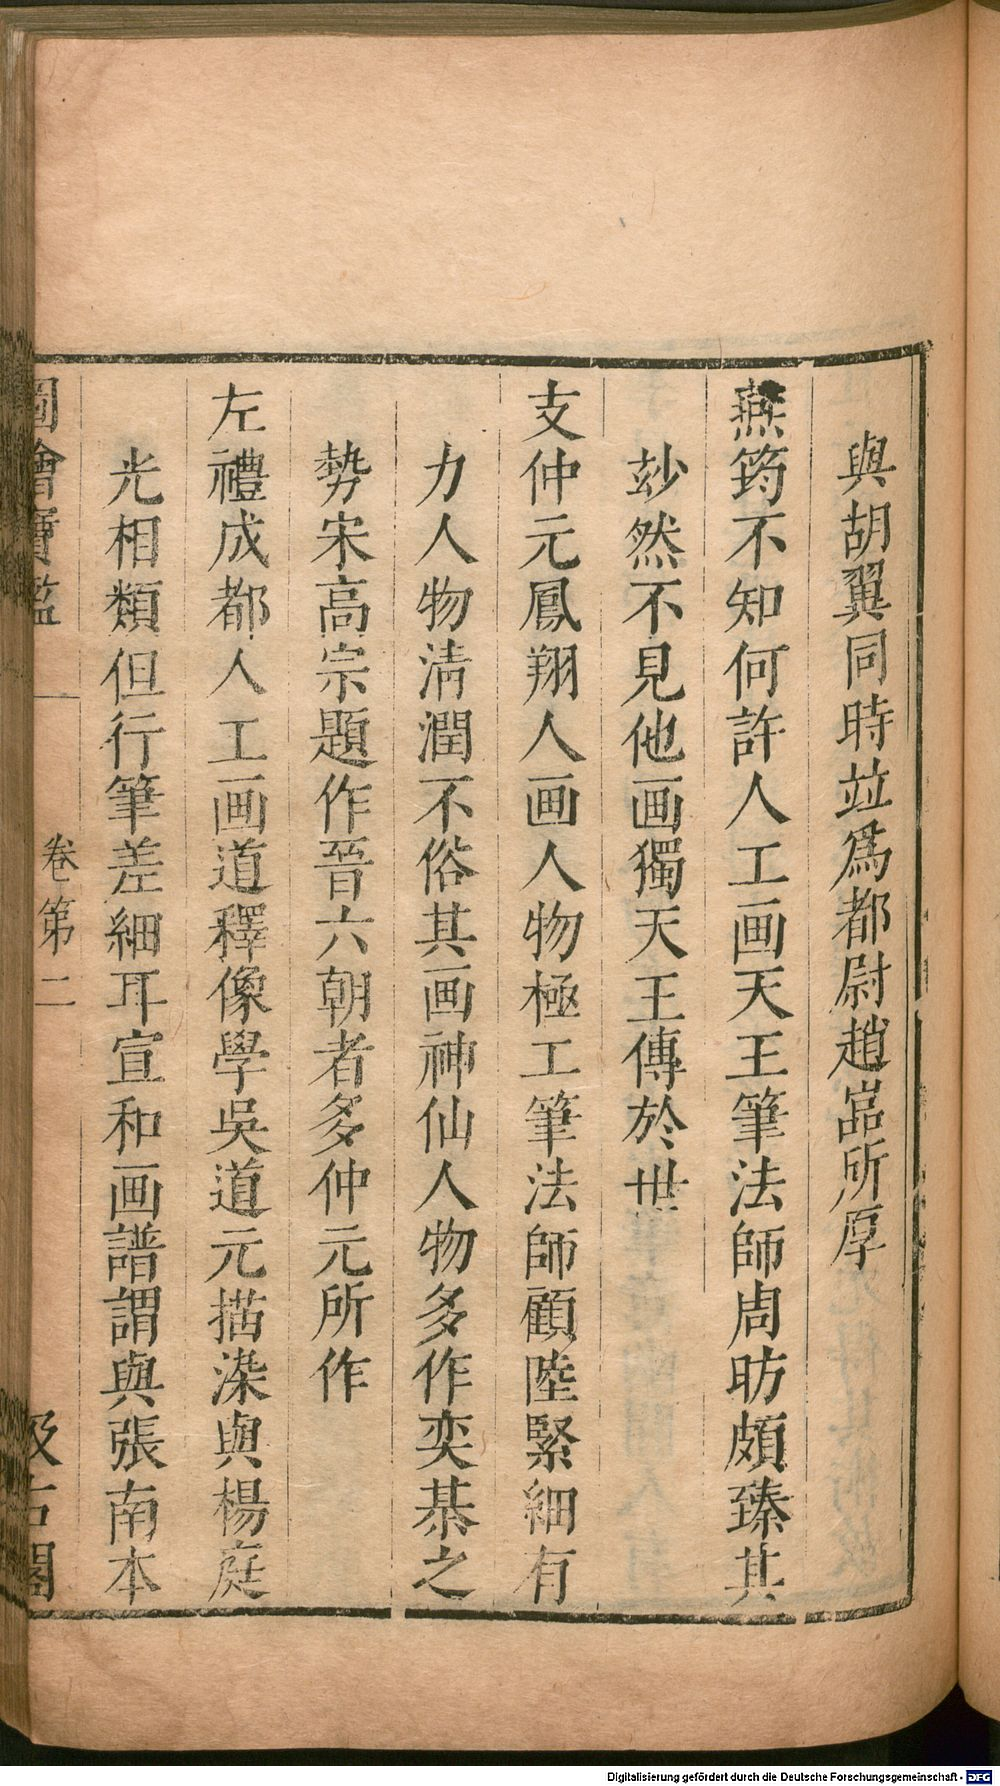 與胡翼同時竝爲都尉趙嵓所厚
燕筠不知何許人工画天王筆法師周昉頗臻其
玅然不見他画獨天王傳於世
支仲元鳳翔人画人物極工筆法師顧陸緊細有
力人物清潤不俗其画神仙人物多作奕棊之
勢宋高宗題作晉六朝者多仲元所作
左禮成都人工画道釋像學吳道元描染與楊庭
光相類但行筆差細耳宣和画譜謂與張南本
圖繪寶鑑 卷第二 汲古閣
Digitalisierung gefördert durch die Deutsche Forschungsgemeinschaft - DFG